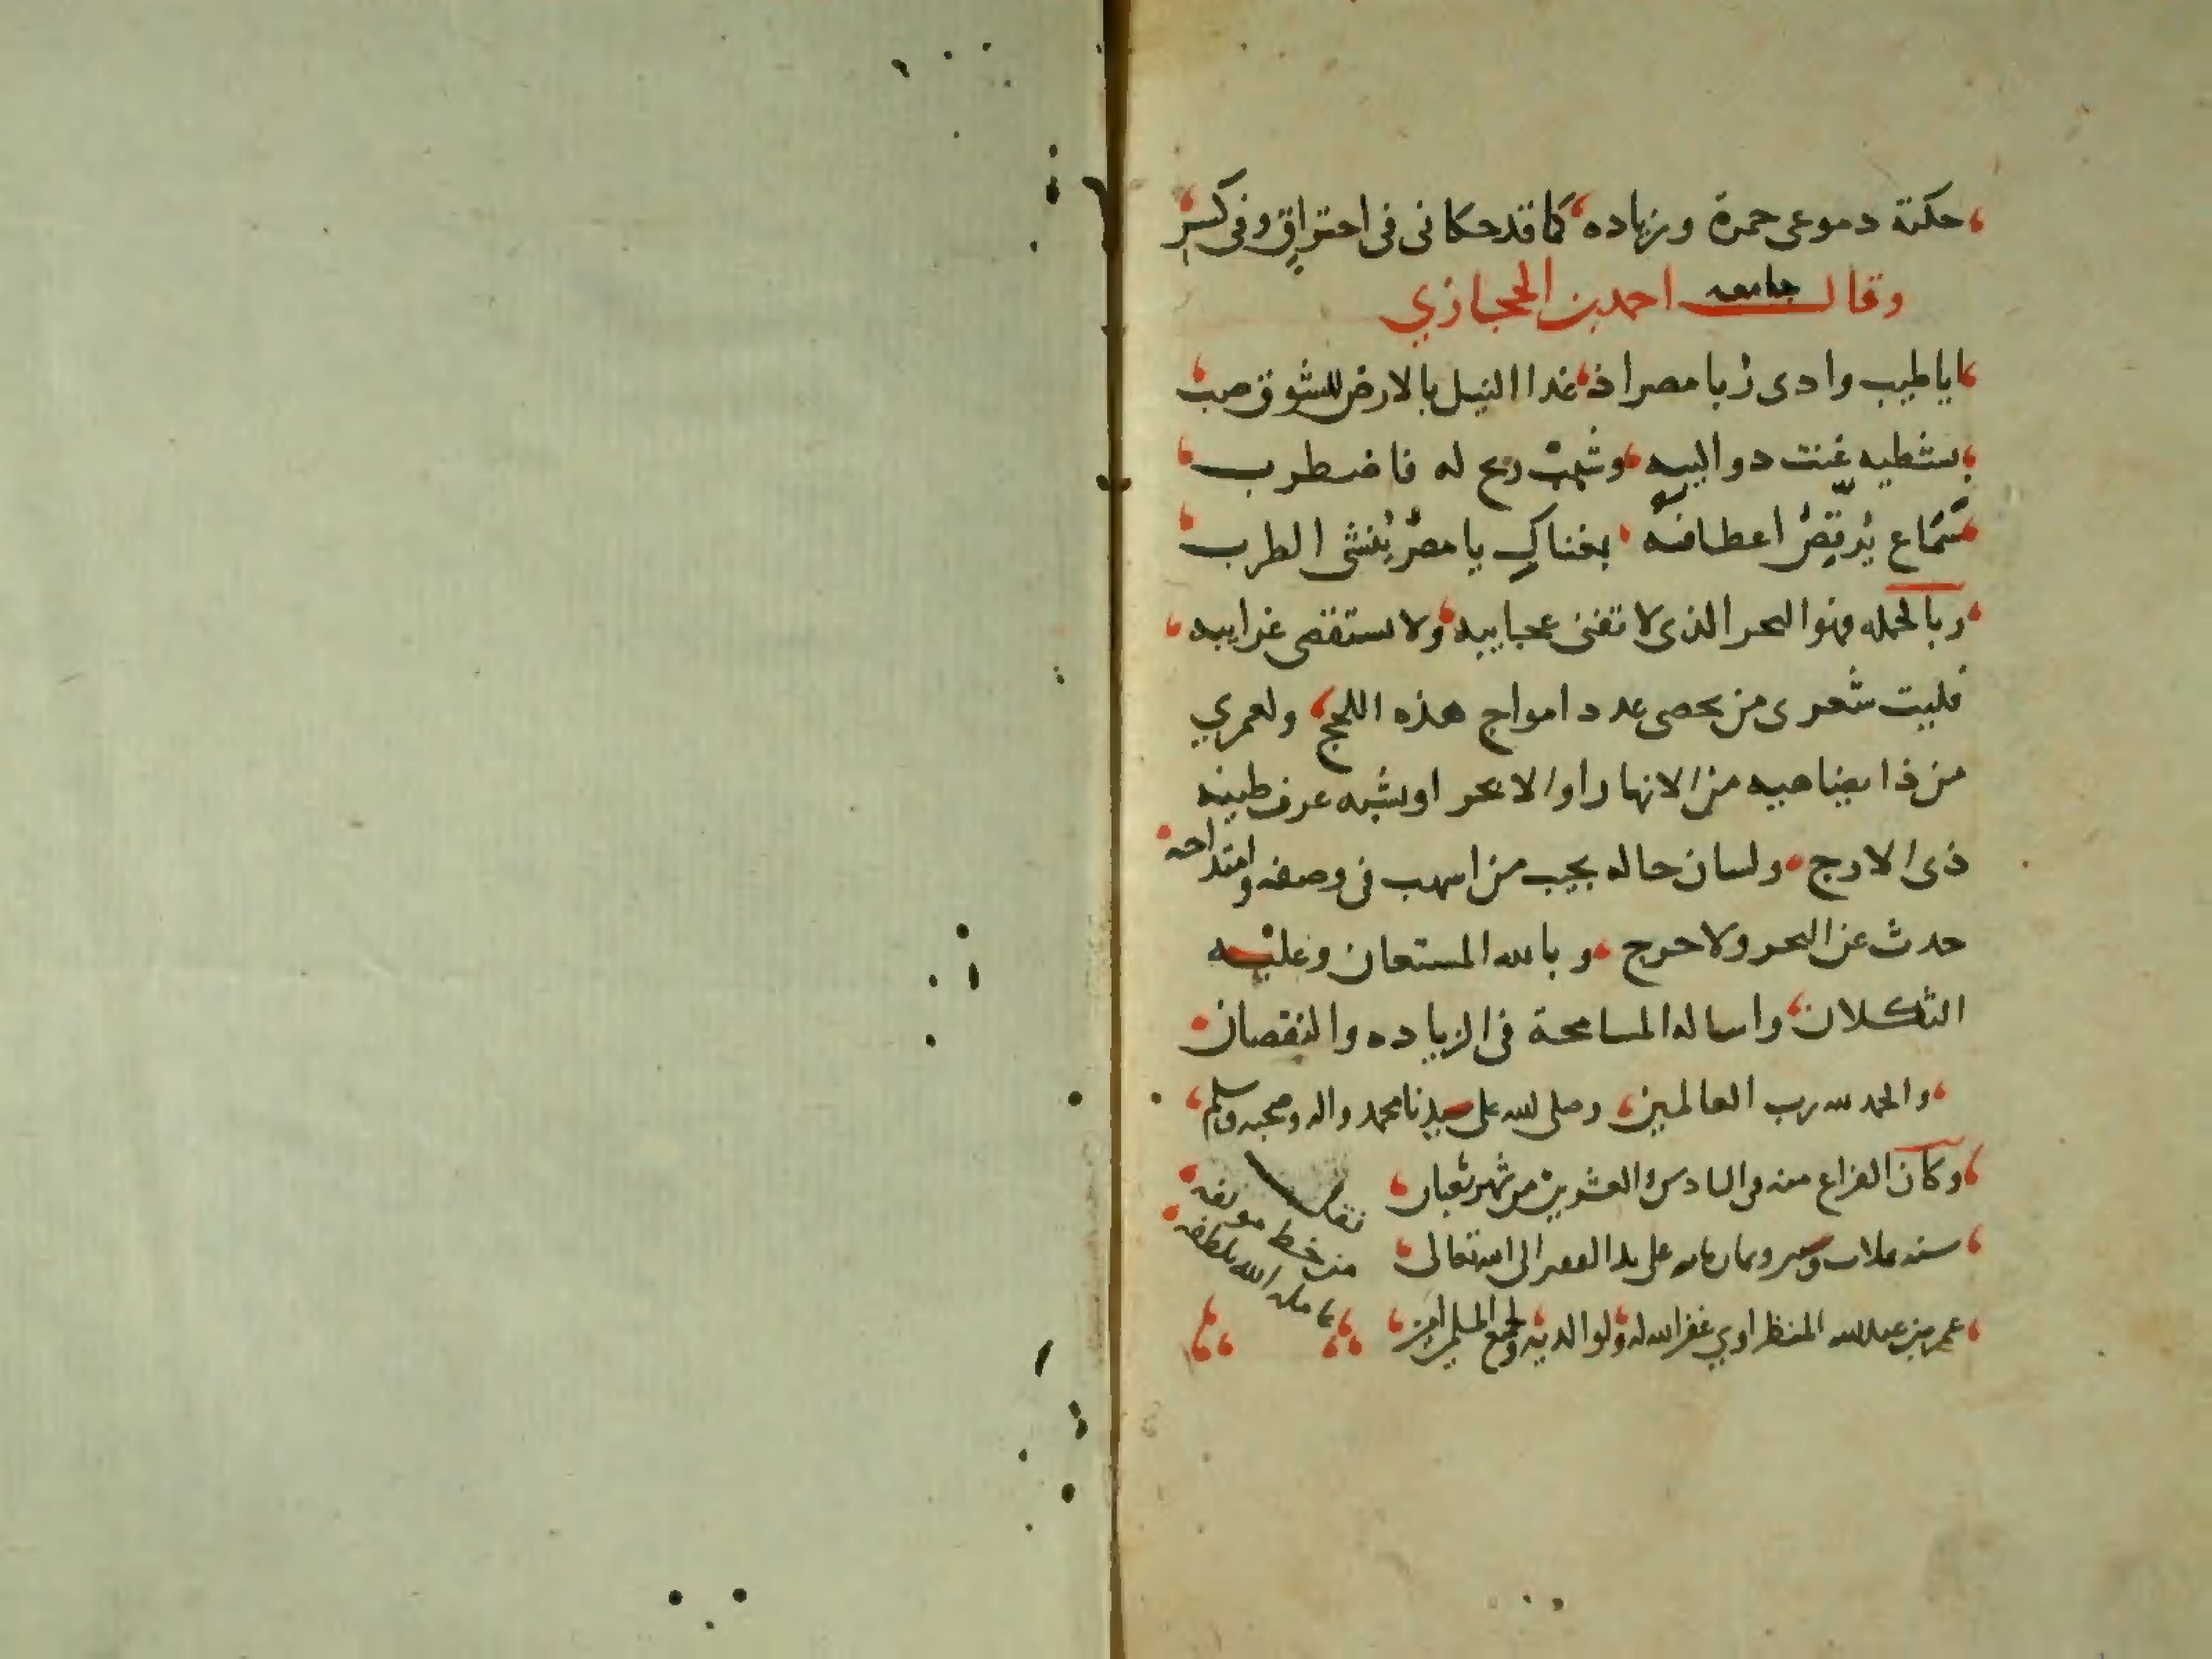 حكته دموعى حمرة وزياده كما قد حكانى فى احتراق وفى كسر
وقال جامعه احمد بن الحجازي
ايا طيب وادى رُبا مصر اذ غدا النيل بالارض للشوق صب
بشطيه غنت دواليبه وشببت ريح له فاضطرب
سَمَاع يُرقِّصُ اعطافَهُ بغناكِ يا مصرُ يُنشى الطرب
وبالجمله فهو البحر الذى لا تفنى عجايبه ولا تستقصى غرايبه
فليت شعرى من يحصى عدد امواج هذه اللجج ولعمري
من ذا يضاهيه من الانهار او الابحر او يشبه عرف طينه
ذى الارج ولسان حاله يجيب من اسهب فى وصفه وامتداحه
حدث عن البحر ولا حرج وبالله المستعان وعليه
التكلان واساله المسامحة فى الزياده والنقصان
والحمد لله رب العالمين وصلى الله على سيدنا محمد واله وصحبه وسلم
وكان الفراغ منه فى السادس والعشرين من شهر شعبان
سنه ثلاث وستين وثمان مايه على يد الفقير الى الله تعالى
عمر بن عبد الله المنظراوي غفر الله له ولوالديه ولجميع المسلمين امين
نقلت
من خط مولفه
عامله الله بلطفه